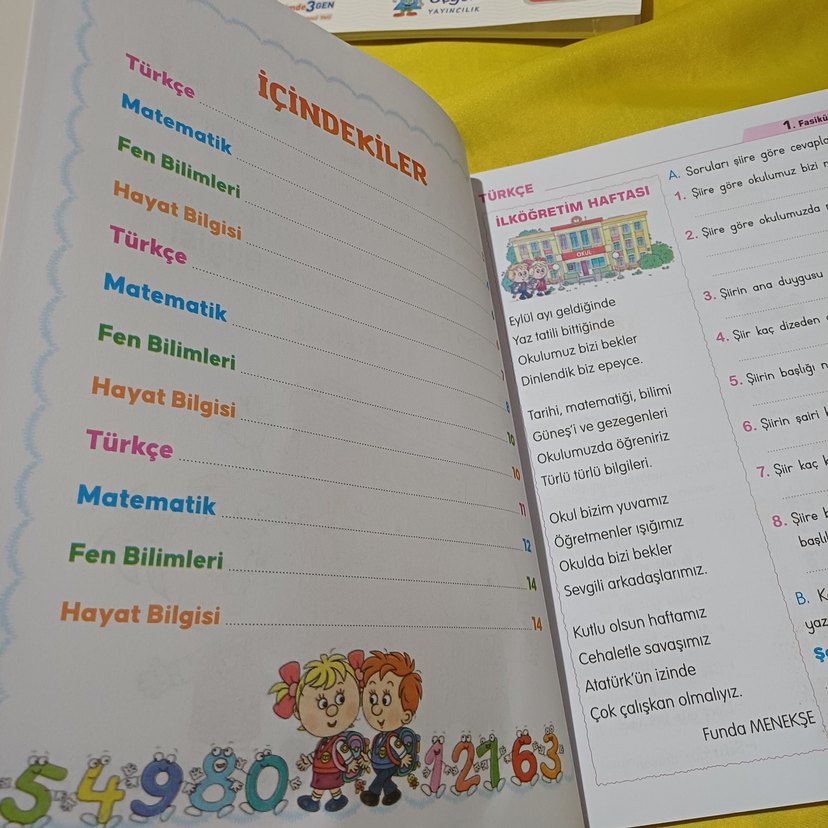 3GEN
YAYINCILIK
İÇİNDEKİLER
Türkçe
Matematik
Fen Bilimleri
Hayat Bilgisi
Türkçe
Matematik
Fen Bilimleri 8
Hayat Bilgisi 10
Türkçe 10
Matematik 11
Fen Bilimleri 12
Hayat Bilgisi 14
14
5 4 9 8 0 1 2 1 6 3
1. Fasikü
TÜRKÇE
İLKÖĞRETİM HAFTASI
OKUL
Eylül ayı geldiğinde
Yaz tatili bittiğinde
Okulumuz bizi bekler
Dinlendik biz epeyce.
Tarihi, matematiği, bilimi
Güneş'i ve gezegenleri
Okulumuzda öğreniriz
Türlü türlü bilgileri.
Okul bizim yuvamız
Öğretmenler ışığımız
Okulda bizi bekler
Sevgili arkadaşlarımız.
Kutlu olsun haftamız
Cehaletle savaşımız
Atatürk'ün izinde
Çok çalışkan olmalıyız.
Funda MENEKŞE
A. Soruları şiire göre cevapla
1. Şiire göre okulumuz bizi
2. Şiire göre okulumuzda
3. Şiirin ana duygusu
4. Şiir kaç dizeden
5. Şiirin başlığı
6. Şiirin şairi
7. Şiir kaç
8. Şiire
başlı
B.
yaz